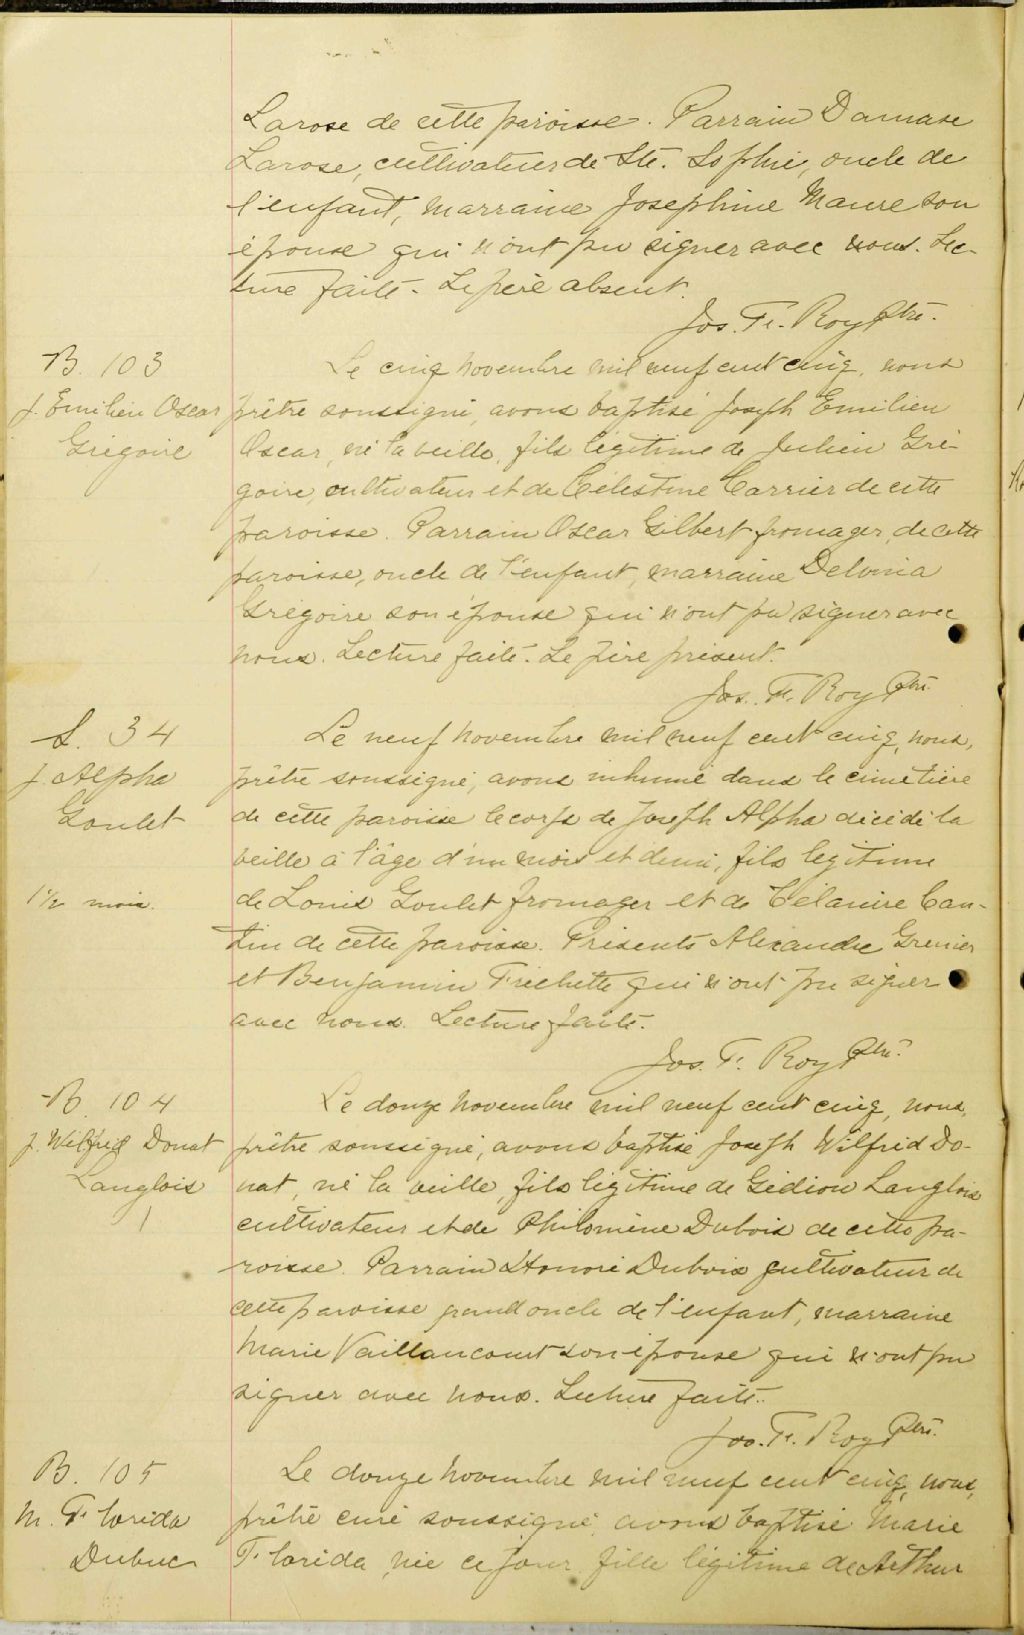 Larose de cette paroisse. Parrain Damase
Larose, cultivateur de Ste. Sophie, oncle de
l'enfant, marraine Josephine Maure son
épouse qui n'ont pu signer avec nous. Lec-
ture faite. Le père absent.
Jos. F. Roy Ptre.
B. 103
J. Emilien Oscar
Grégoire
Le cinq novembre mil neuf cent cinq, nous
prêtre soussigné, avons baptisé Joseph Emilien
Oscar, né la veille, fils légitime de Julien Gré-
goire, cultivateur et de Célestine Carrier de cette
paroisse. Parrain Oscar Gilbert fromager, de cette
paroisse, oncle de l'enfant, marraine Delvina
Grégoire son épouse qui n'ont pu signer avec
nous. Lecture faite. Le père présent.
Jos. F. Roy Ptre.
S. 34
J. Alpha
Goulet
1 1/2 mois.
Le neuf novembre mil neuf cent cinq, nous,
prêtre soussigné, avons inhumé dans le cimetière
de cette paroisse le corps de Joseph Alpha décédé la
veille à l'âge d'un mois et demi, fils légitime
de Louis Goulet fromager et de Célanire Can-
tin de cette paroisse. Présents Alexandre Grenier
et Benjamin Frechette qui n'ont pu signer
avec nous. Lecture faite.
Jos. F. Roy Ptre.
B. 104
J. Wilfrid Donat
Langlois
1
Le douze novembre mil neuf cent cinq, nous,
prêtre soussigné, avons baptisé Joseph Wilfrid Do-
nat, né la veille, fils légitime de Gédéon Langlois
cultivateur et de Philomène Dubois de cette pa-
roisse. Parrain Honoré Dubois cultivateur de
cette paroisse grand oncle de l'enfant, marraine
Marie Vaillancourt son épouse qui n'ont pu
signer avec nous. Lecture faite.
Jos. F. Roy Ptre.
B. 105
M. Florida
Dubuc
Le douze novembre mil neuf cent cinq, nous,
prêtre curé soussigné, avons baptisé Marie
Florida, née ce jour, fille légitime de Arthur